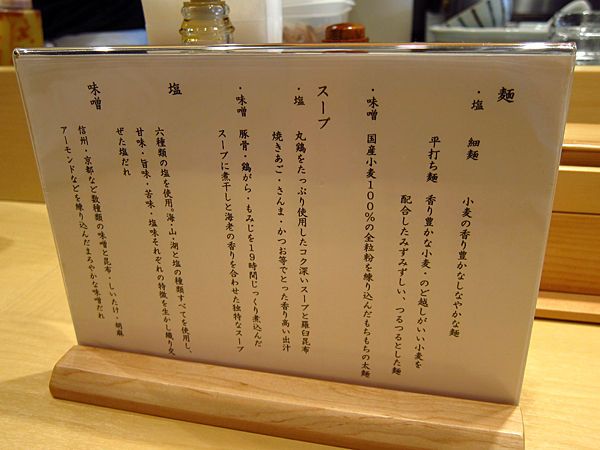 麺
・塩 細麺 小麦の香り豊かなしなやかな麺
平打ち麺 香り豊かな小麦・のど越しがいい小麦を
配合したみずみずしい、つるつるとした麺
・味噌 国産小麦100%の全粒粉を練り込んだもちもちの太麺
スープ
・塩 丸鶏をたっぷり使用したコク深いスープと羅臼昆布
焼きあご・さんま・かつお等でとった香り高い出汁
・味噌 豚骨・鶏がら・もみじを19時間じっくり煮込んだ
スープに煮干しと海老の香りを合わせた独特なスープ
塩 六種類の塩を使用。海・山・湖と塩の種類すべてを使用し、
甘味・旨味・苦味・塩味それぞれの特徴を生かし織り交
ぜた塩だれ
味噌 信州・京都など数種類の味噌と昆布・しいたけ・胡麻
アーモンドなどを練り込んだまろやかな味噌だれ